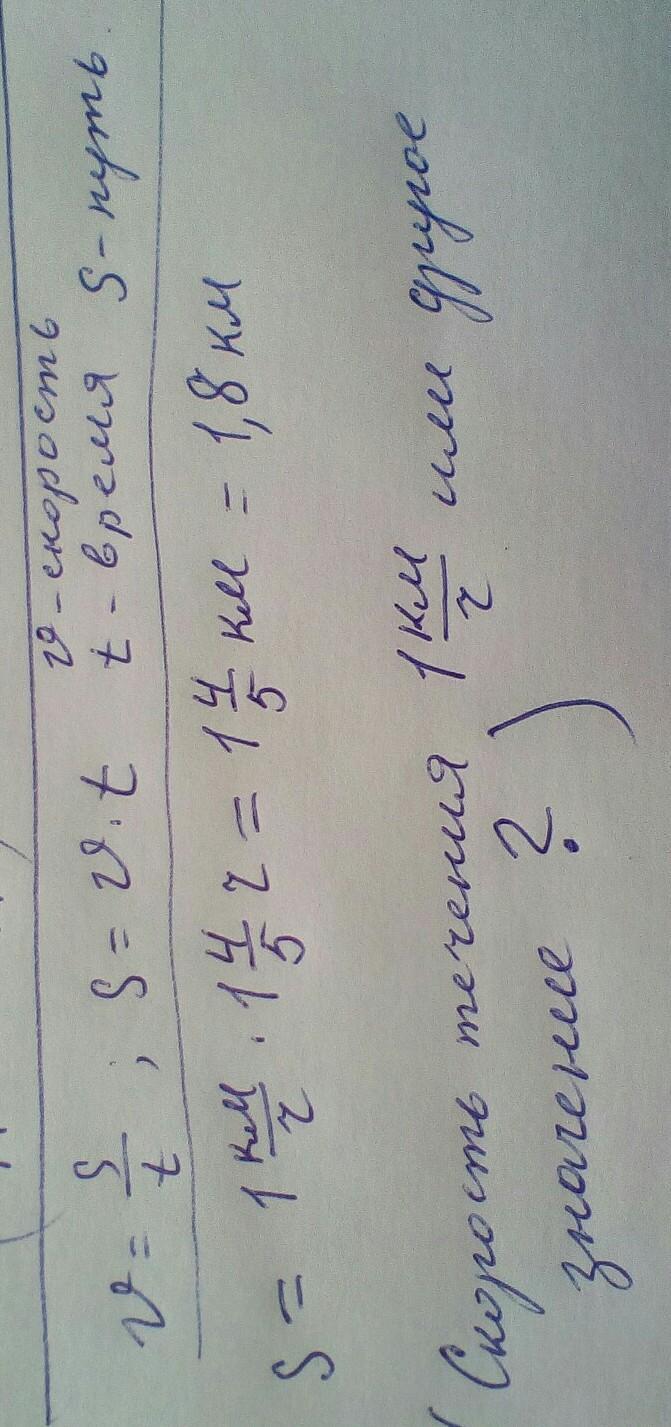 v - скорость
v = s/t ; s = v · t t - время s - путь.
s = 1 км/ч · 1 4/5 ч = 1 4/5 км = 1,8 км
(Скорость течения 1 км/ч или другое
значение ?)